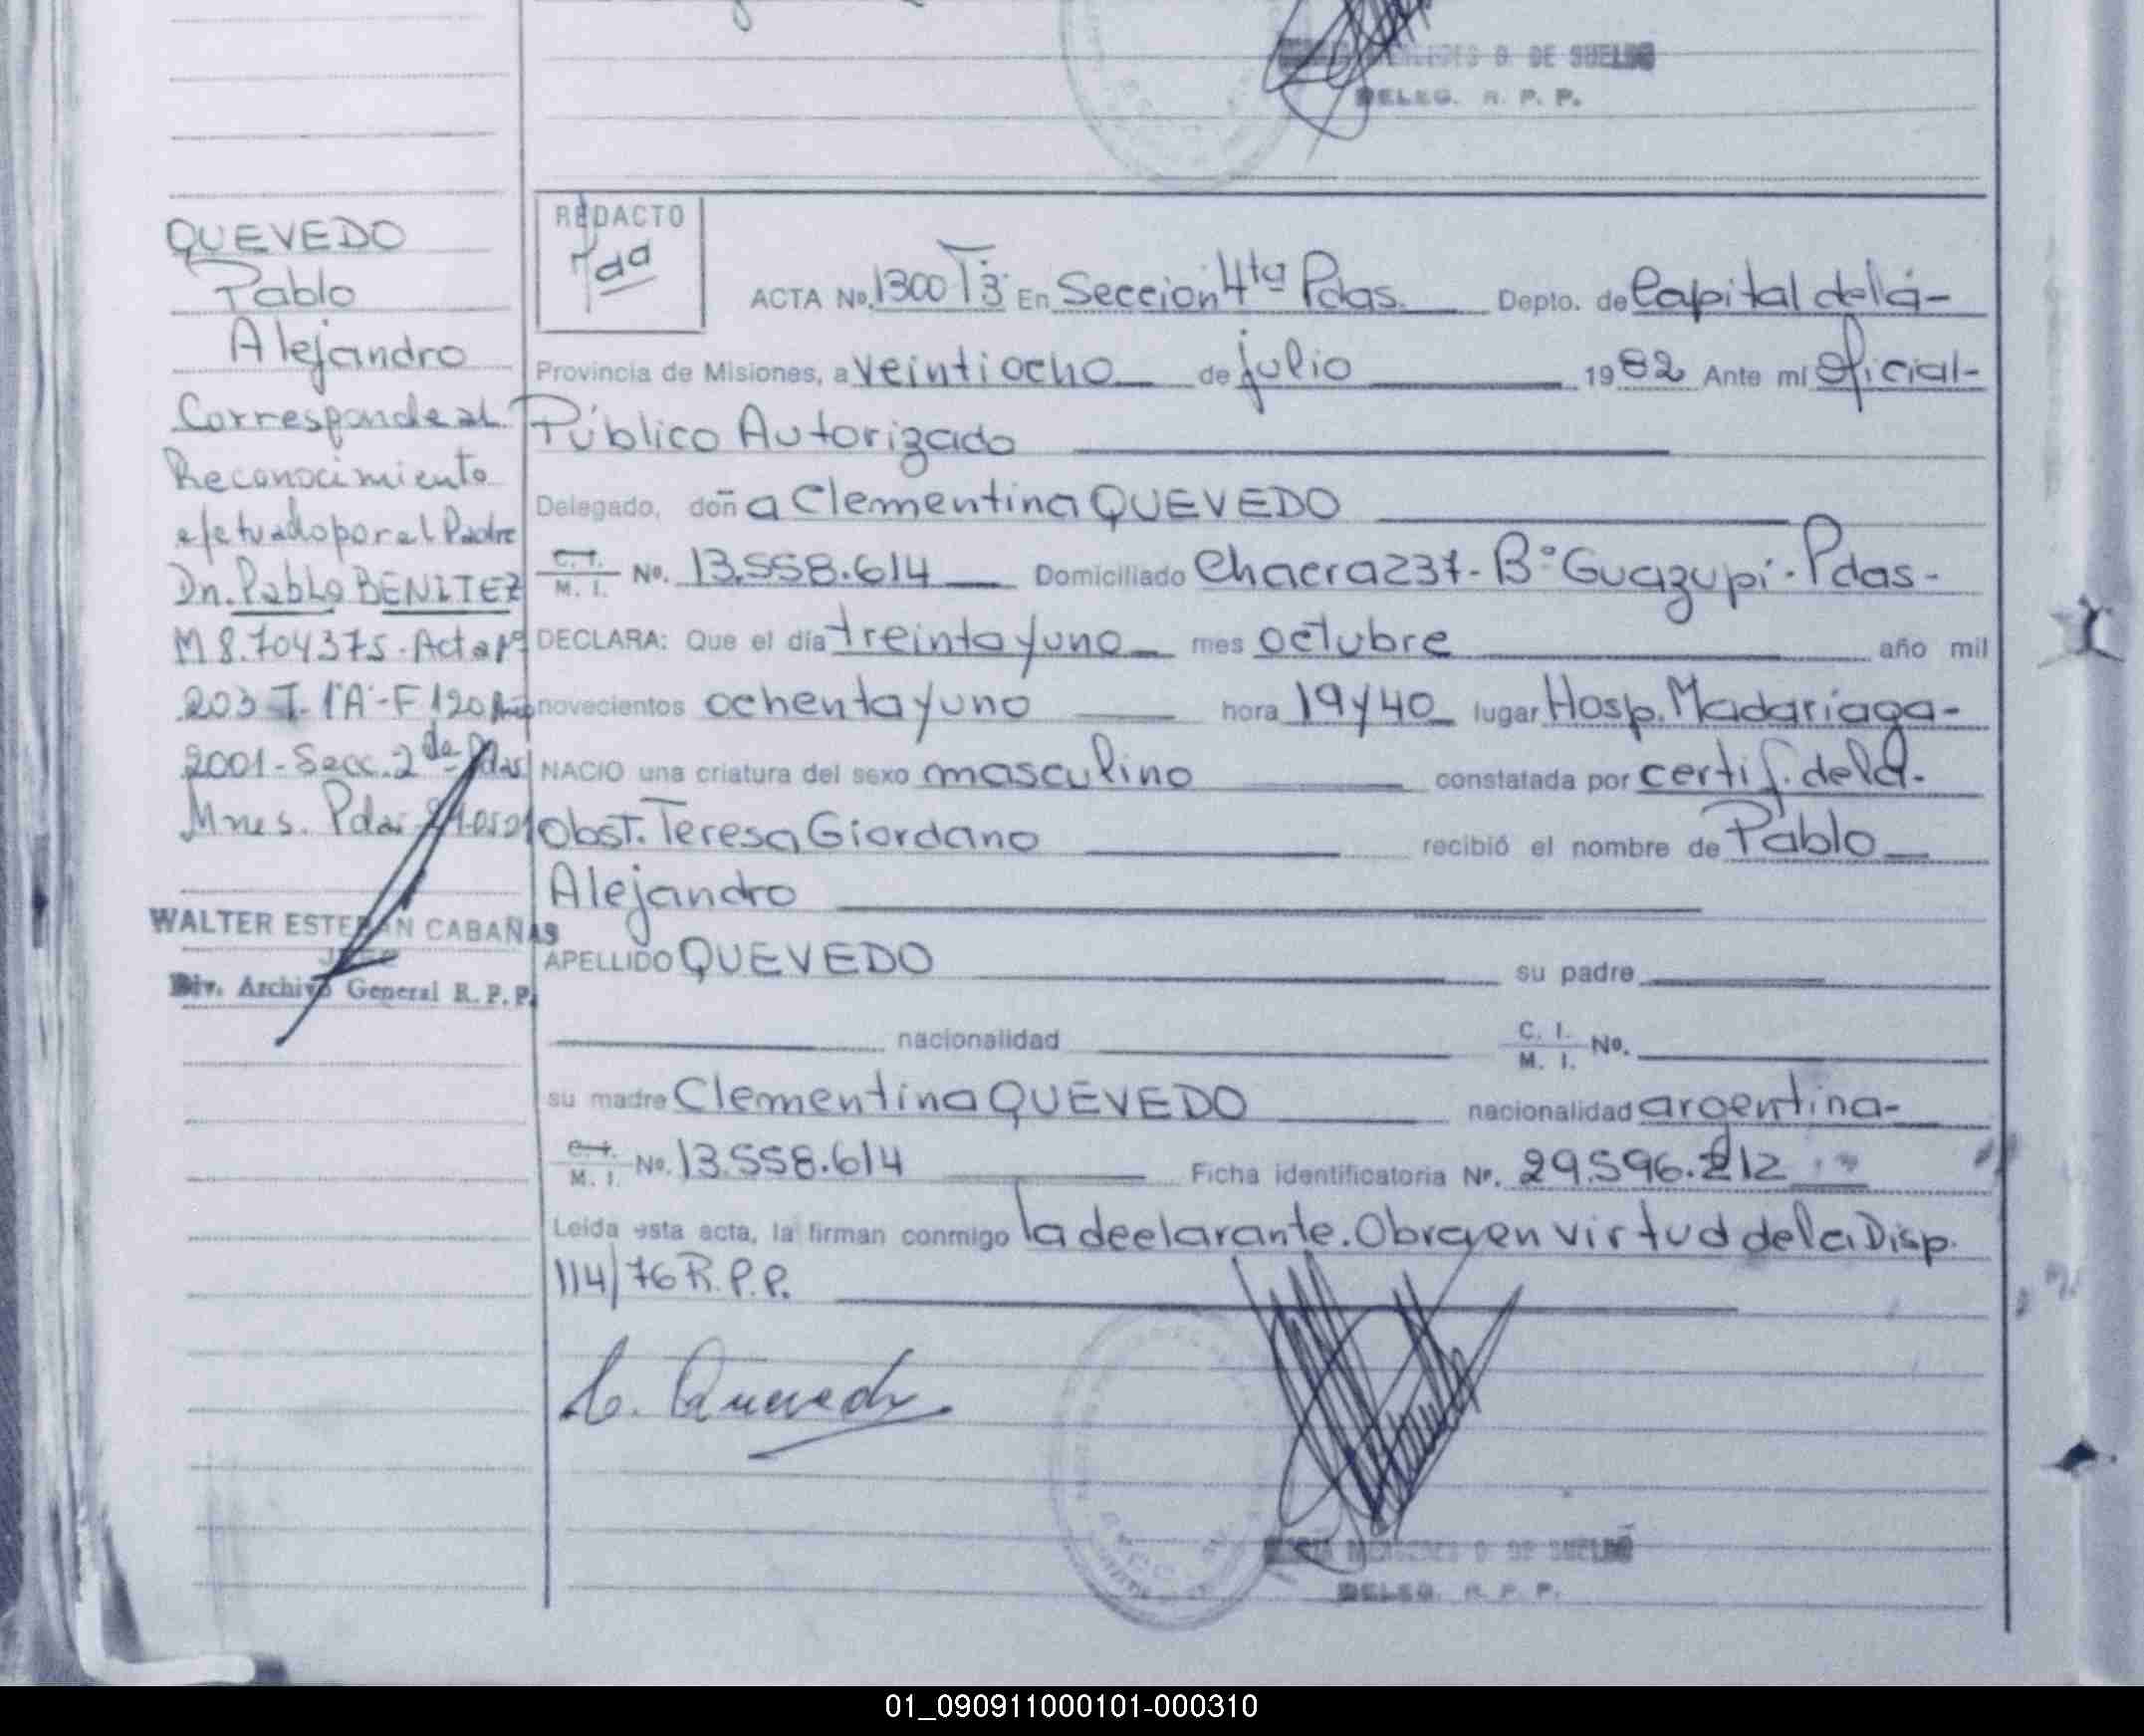 DE SUELDO
DELEG. R. P. P.
QUEVEDO
Pablo
Alejandro
Corresponde al
Reconocimiento
efetuado por el Padre
Dn. Pablo BENITEZ
M 8.704375 - Acta Nº
203 T. 1ºA - F 120
2001 - Secc. 2da Pdas
Mnes. Pdas
WALTER ESTEBAN CABAÑAS
JEFE
Div. Archivo General R. P. P.
REDACTO
ACTA No. 1300 T 3º En Sección 4ta Pdas. Depto. de Capital de la-
Provincia de Misiones, a veintiocho de julio 1982 Ante mi Oficial-
Público Autorizado
Delegado, doña Clementina QUEVEDO
C. I. / M. I. No. 13.558.614 Domiciliado Chacra 237 - Bº Guazupi - Pdas -
DECLARA: Que el día treinta y uno mes octubre año mil
novecientos ochenta y uno hora 19 y 40 lugar Hosp. Madariaga -
NACIO una criatura del sexo masculino constatada por certif. de la.
Obst. Teresa Giordano recibió el nombre de Pablo
Alejandro
APELLIDO QUEVEDO su padre
nacionalidad C. I. / M. I. No.
su madre Clementina QUEVEDO nacionalidad argentina-
C. I. / M. I. No. 13.558.614 Ficha identificatoria Nº. 29.596.212
Leida esta acta, la firman conmigo la declarante. Obra en virtud de la Disp.
114/76 R.P.P.
C. Quevedo
MERCEDES D. DE SUELDO
DELEG. R. P. P.
01_090911000101-000310